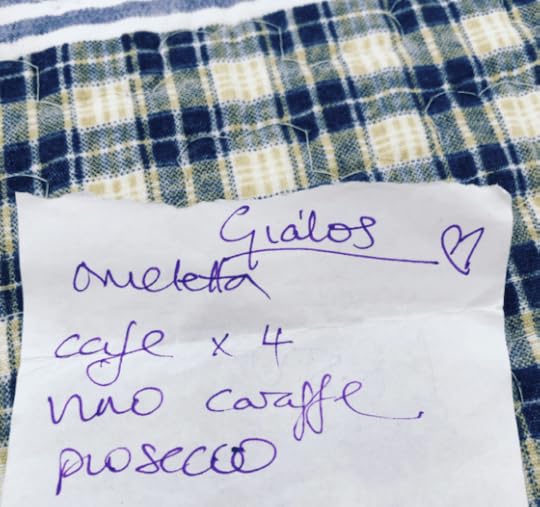 Giálos
omeletta
cafe x 4
vino caraffe
prosecco